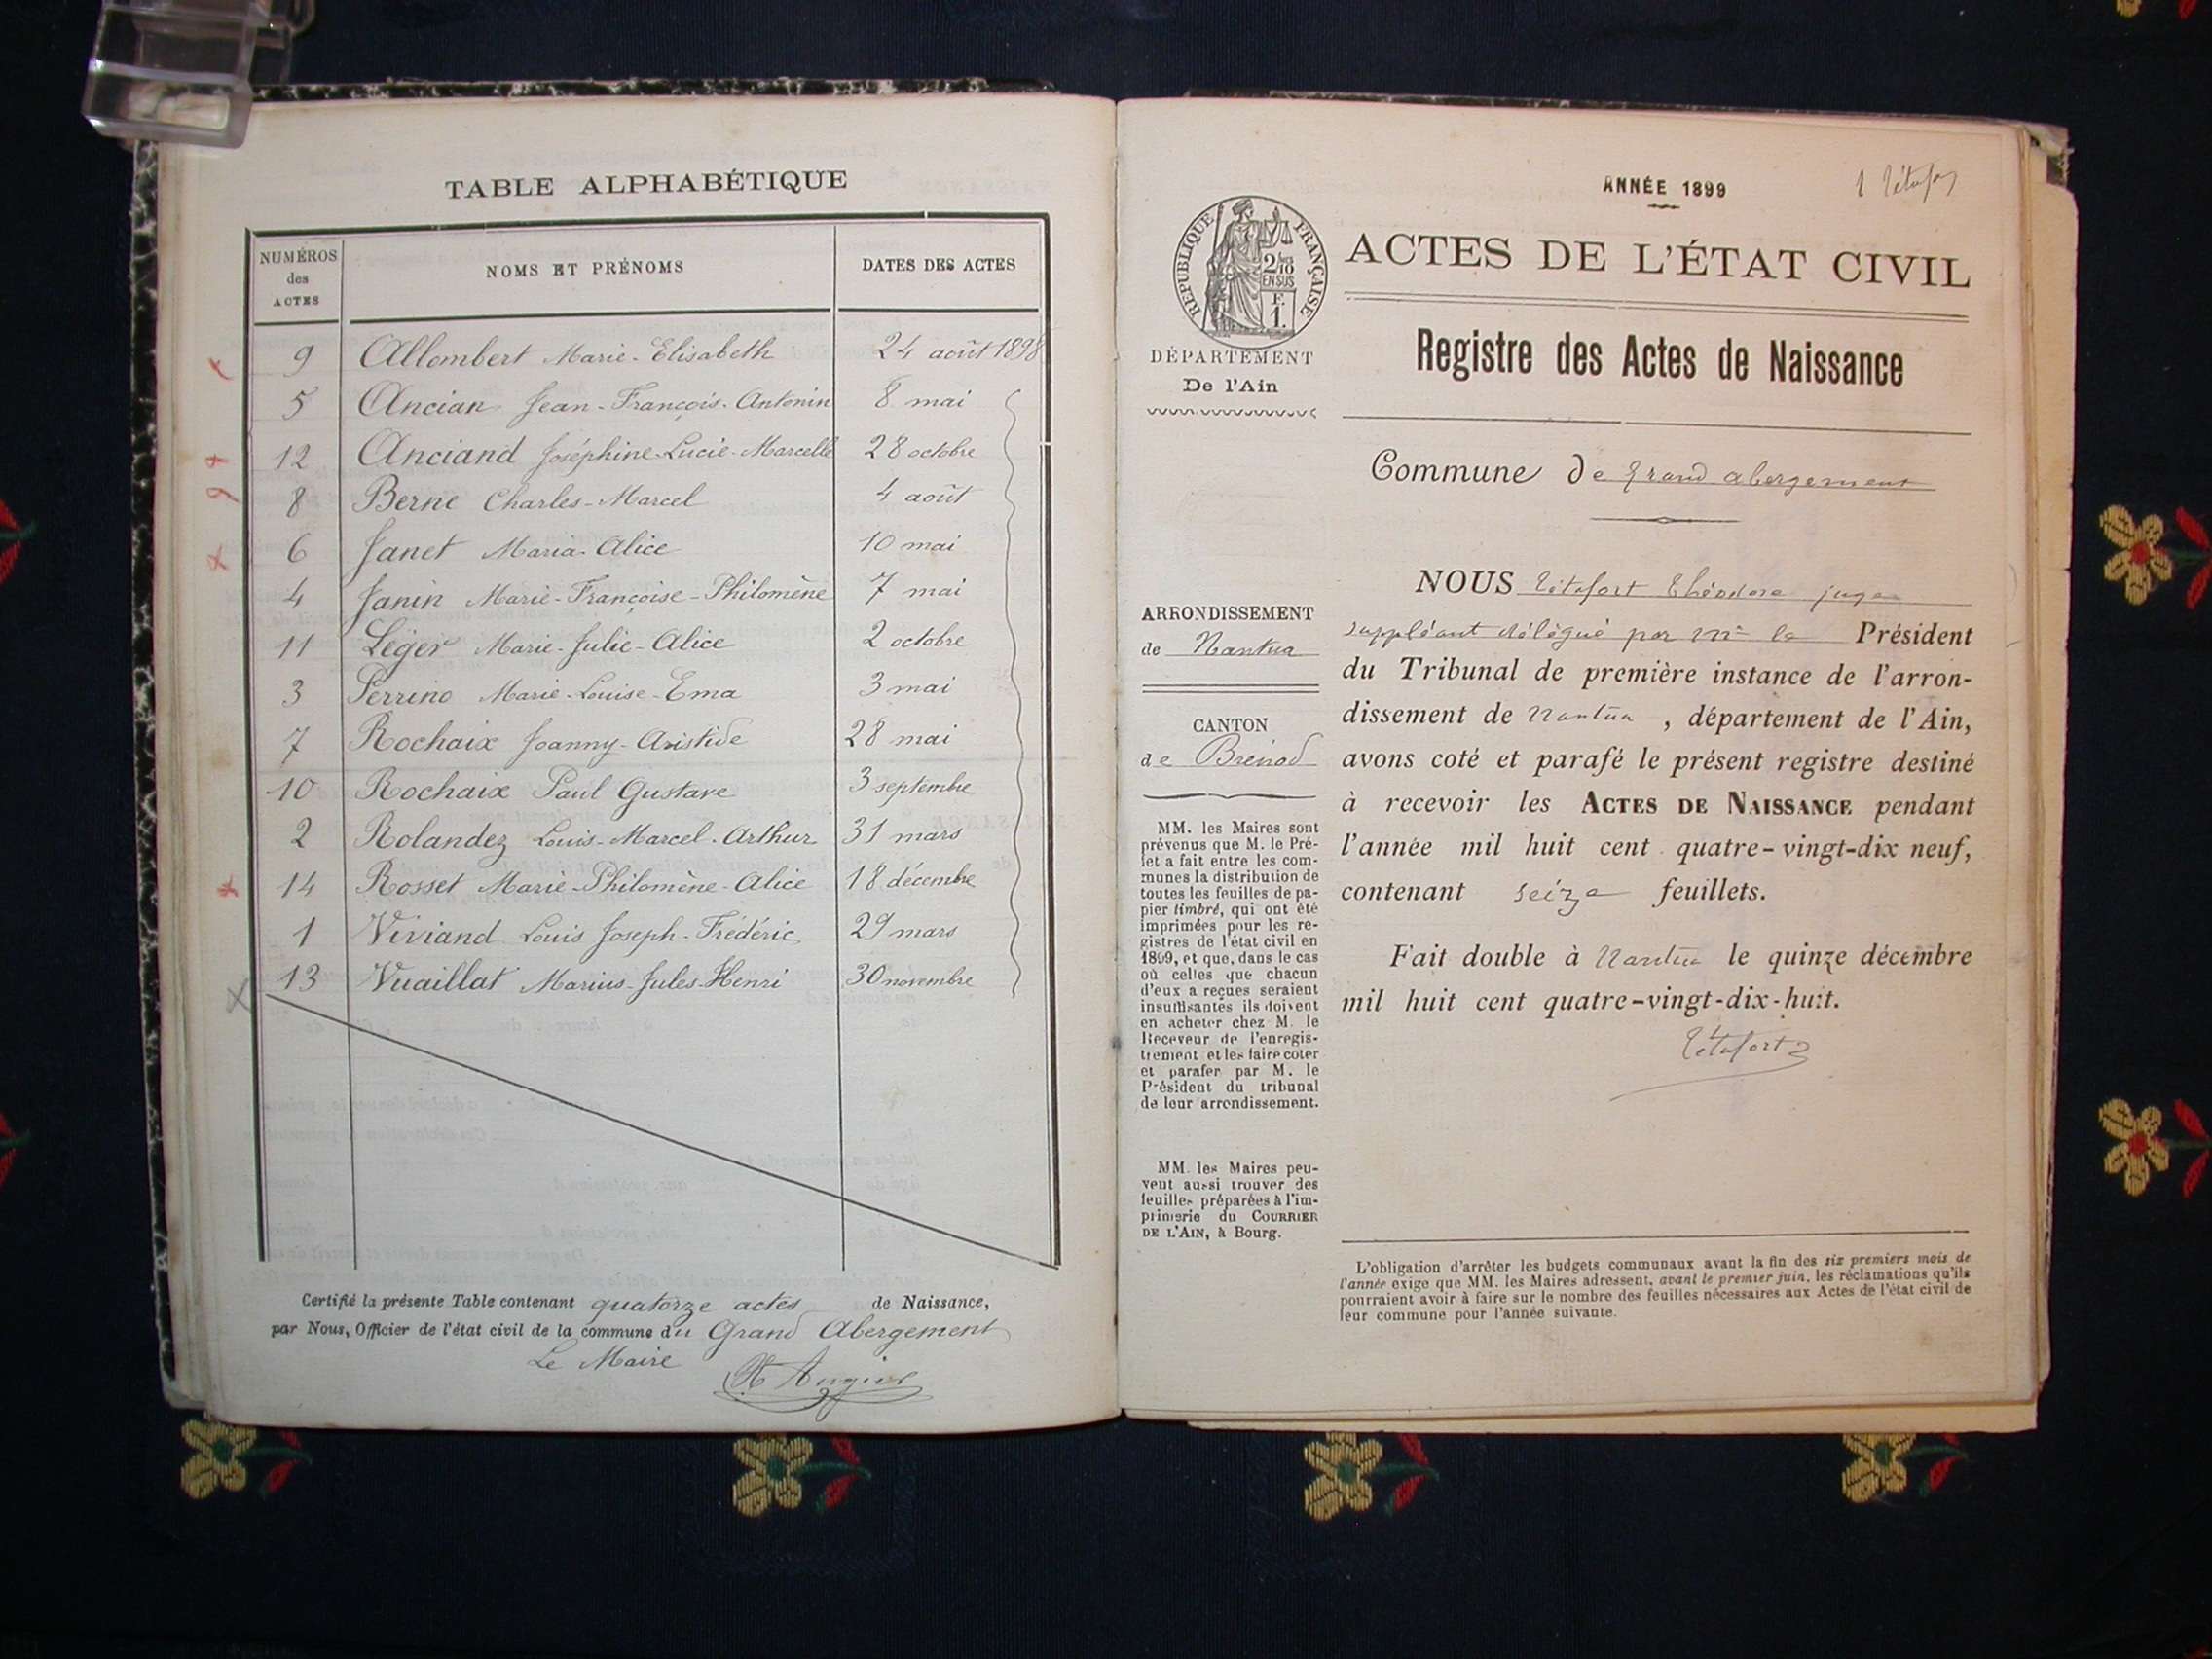 TABLE ALPHABÉTIQUE
NUMÉROS des ACTES NOMS ET PRÉNOMS DATES DES ACTES
9 Allombert Marie-Elisabeth 24 août 1898
5 Ancian Jean-François-Antonin 8 mai
12 Anciand Joséphine-Lucie-Marcelle 28 octobre
8 Berne Charles-Marcel 4 août
6 Janet Maria-Alice 10 mai
4 Janin Marie-Françoise-Philomène 7 mai
11 Léger Marie-Julie-Alice 2 octobre
3 Perrino Marie-Louise-Ema 3 mai
7 Rochaix Joanny-Aristide 28 mai
10 Rochaix Paul Gustave 3 septembre
2 Rolandez Louis-Marcel-Arthur 31 mars
14 Rosset Marie-Philomène-Alice 18 décembre
1 Viviand Louis Joseph-Frédéric 29 mars
13 Vuaillat Marius-Jules-Henri 30 novembre
Certifié la présente Table contenant quatorze actes de Naissance,
par Nous, Officier de l'état civil de la commune du Grand Abergement
Le Maire
ANNÉE 1899
RÉPUBLIQUE FRANÇAISE
2/10 EN SUS
F. 1.
ACTES DE L'ÉTAT CIVIL
Registre des Actes de Naissance
DÉPARTEMENT
De l'Ain
Commune de Grand abergement
ARRONDISSEMENT
de Nantua
CANTON
de Brénod
MM. les Maires sont
prévenus que M. le Pré-
fet a fait entre les com-
munes la distribution de
toutes les feuilles de pa-
pier timbré, qui ont été
imprimées pour les re-
gistres de l'état civil en
1899, et que, dans le cas
où celles que chacun
d'eux a reçues seraient
insuffisantes ils doivent
en acheter chez M. le
Receveur de l'enregis-
trement et les faire coter
et parafer par M. le
Président du tribunal
de leur arrondissement.
MM. les Maires peu-
vent aussi trouver des
feuilles préparées à l'im-
primerie du COURRIER
DE L'AIN, à Bourg.
NOUS Tétafort Théodore juge
suppléant délégué par Mr le Président
du Tribunal de première instance de l'arron-
dissement de Nantua, département de l'Ain,
avons coté et parafé le présent registre destiné
à recevoir les ACTES DE NAISSANCE pendant
l'année mil huit cent quatre-vingt-dix neuf,
contenant seize feuillets.
Fait double à Nantua le quinze décembre
mil huit cent quatre-vingt-dix-huit.
Tétafort
L'obligation d'arrêter les budgets communaux avant la fin des six premiers mois de
l'année exige que MM. les Maires adressent, avant le premier juin, les réclamations qu'ils
pourraient avoir à faire sur le nombre des feuilles nécessaires aux Actes de l'état civil de
leur commune pour l'année suivante.